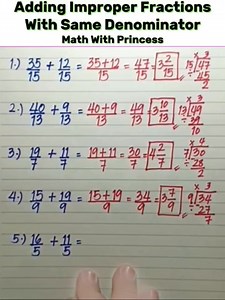 Adding Improper Fractions
With Same Denominator
Math With Princess
1.) 35/15 + 12/15 = 35+12/15 = 47/15 = 3 2/15 15√47 × 3 - 45 2
2.) 40/13 + 9/13 = 40+9/13 = 49/13 = 3 10/13 13√49 × 3 - 39 10
3.) 19/7 + 11/7 = 19+11/7 = 30/7 = 4 2/7 7√30 × 4 - 28 2
4.) 15/9 + 19/9 = 15+19/9 = 34/9 = 3 7/9 9√34 × 3 - 27 7
5.) 16/5 + 11/5 =